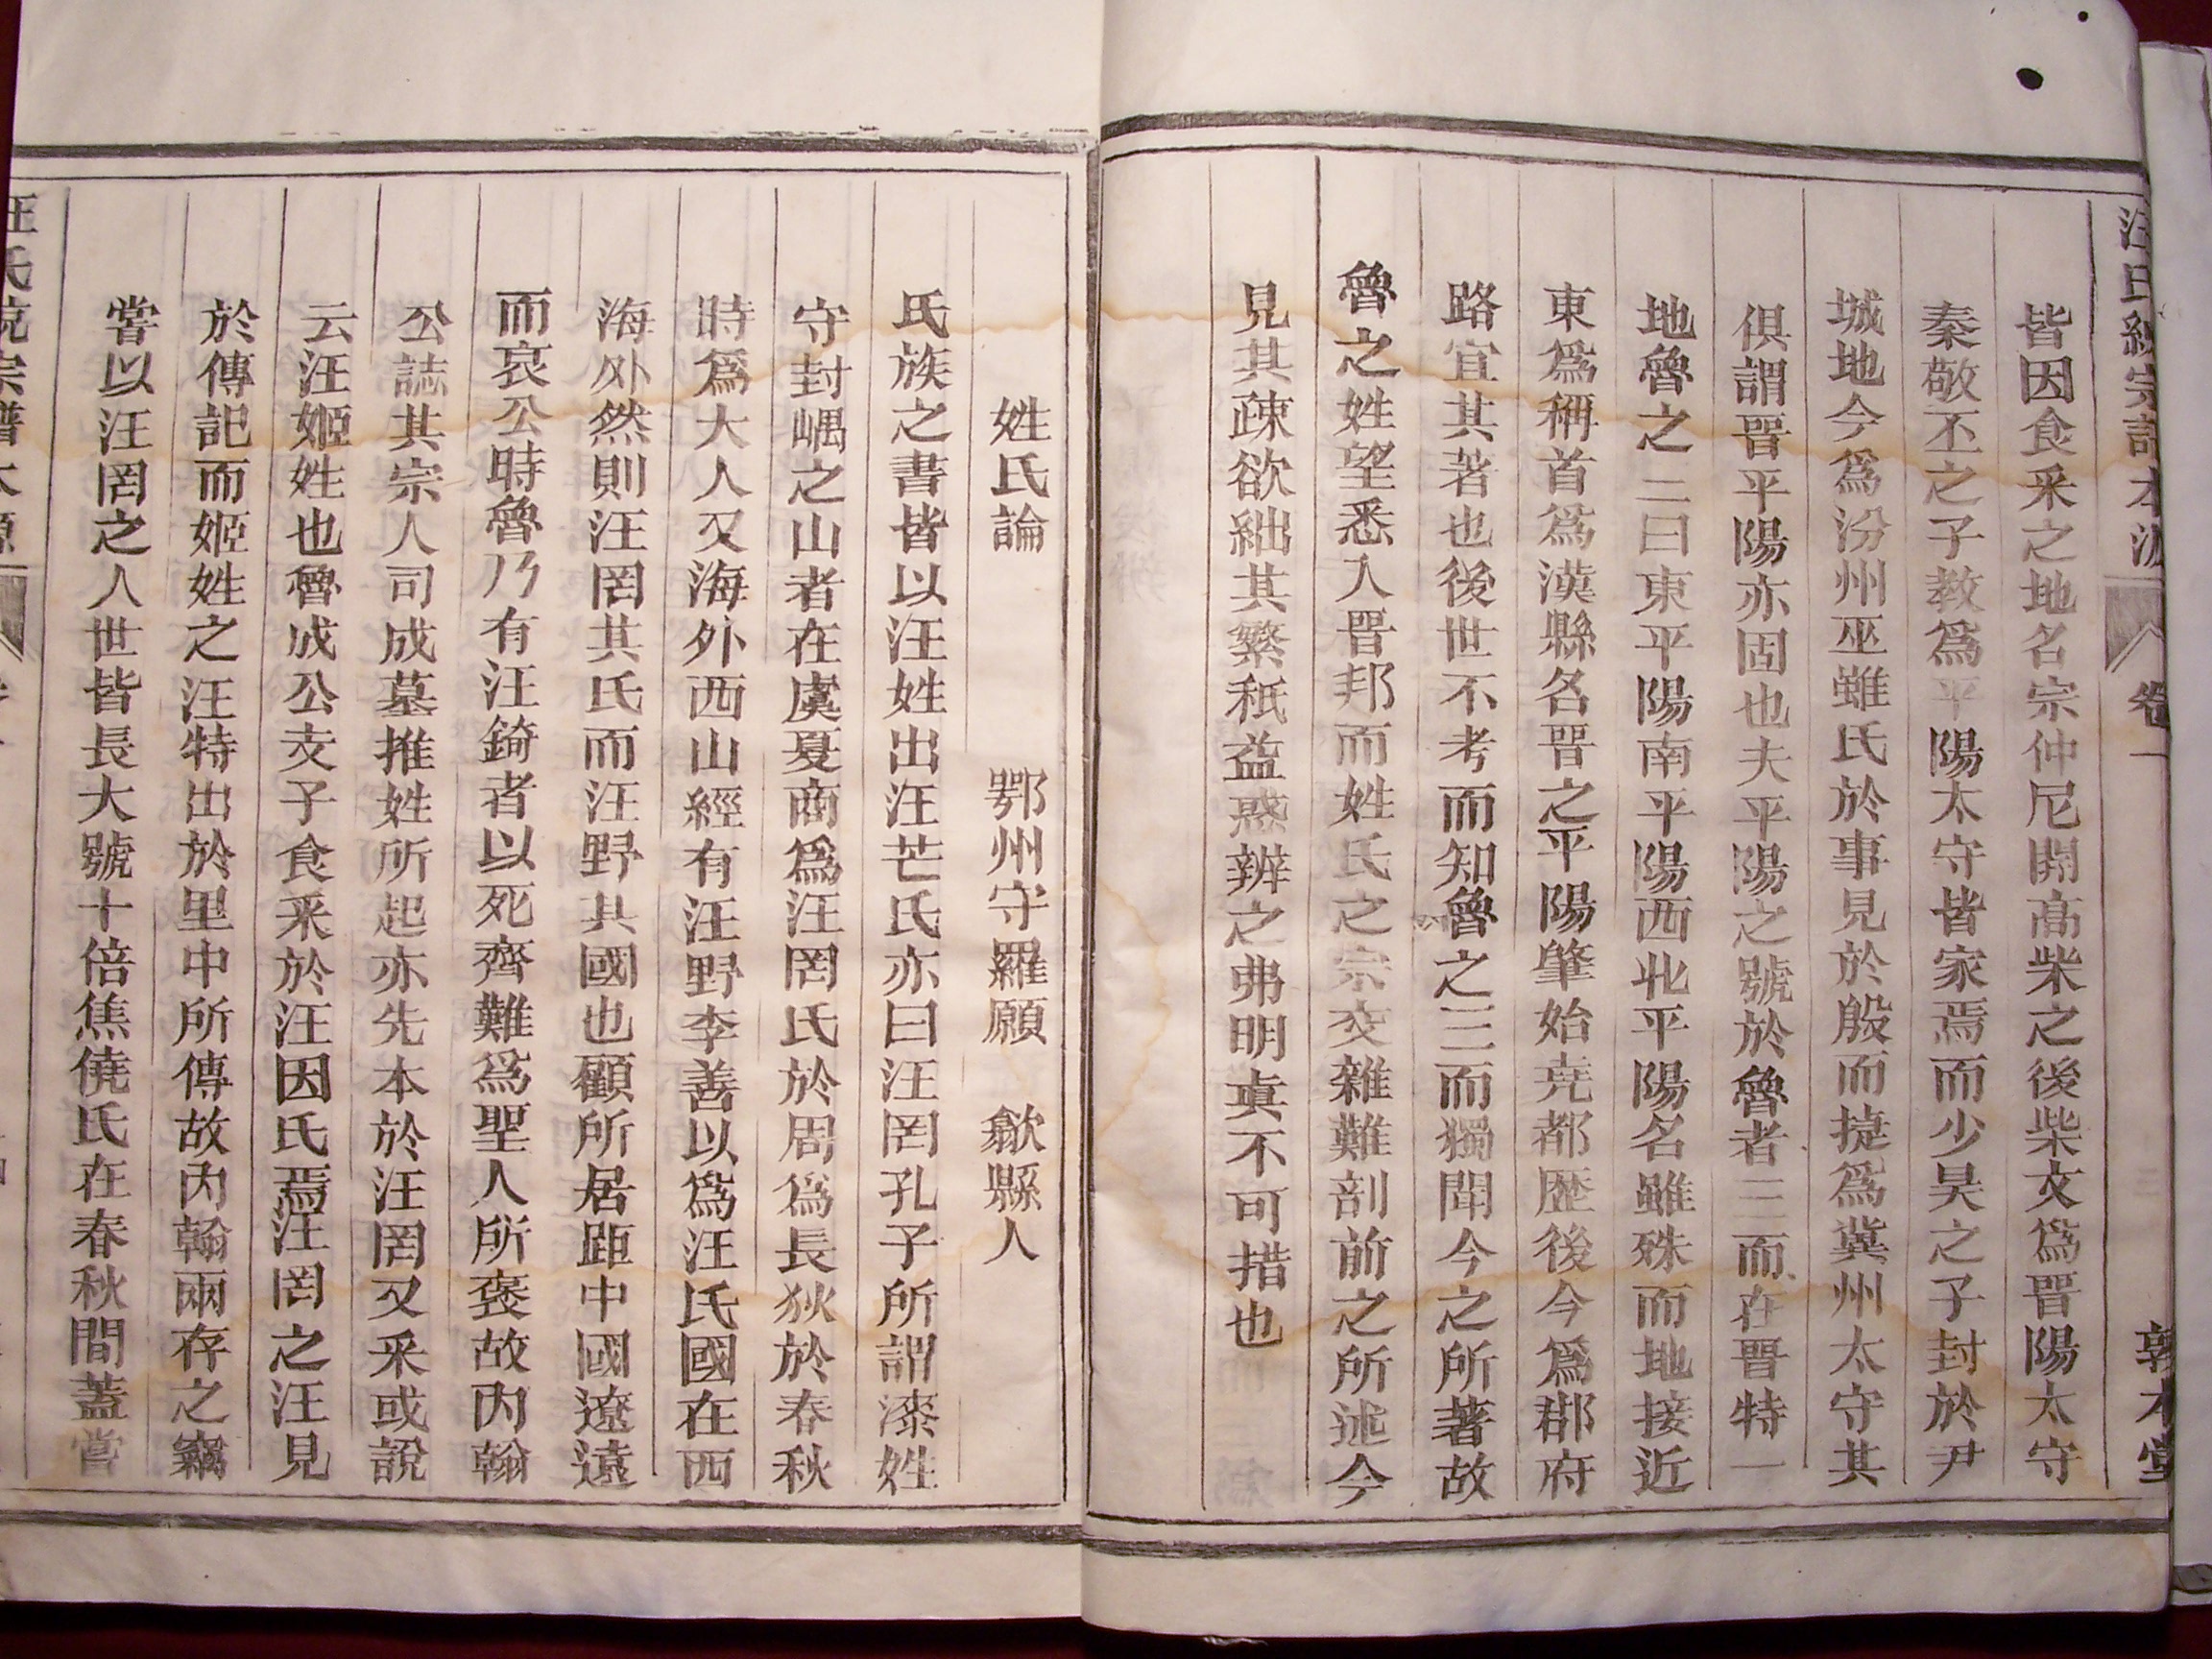 汪氏統宗譜本源 卷一 敦本堂
皆因食采之地名宗仲尼閧高柴之後柴文爲晉陽太守
秦敬丕之子教爲平陽太守皆家焉而少昊之子封於尹
城地今爲汾州巫雖氏於事見於殷而㨗爲冀州太守其
俱謂晉平陽亦固也夫平陽之號於魯者三而在晉特一
地魯之三曰東平陽南平陽西北平陽名雖殊而地接近
東爲稱首爲漢縣名晉之平陽肇始堯都歷後今爲郡府
路宜其著也後世不考而知魯之三而獨聞今之所著故
魯之姓望悉入晉邦而姓氏之宗交雜難剖前之所述今
見其疎欲絀其繁秖益惑辨之弗明眞不可措也
姓氏論 鄂州守羅願 歙縣人
氏族之書皆以汪姓出汪芒氏亦曰汪罔孔子所謂漆姓
守封嵎之山者在虞夏商爲汪罔氏於周爲長狄於春秋
時爲大人又海外西山經有汪野李善以爲汪氏國在西
海外然則汪罔其氏而汪野其國也顧所居距中國遼遠
而哀公時魯乃有汪錡者以死齊難爲聖人所褒故内翰
公誌其宗人司成墓推姓所起亦先本於汪罔又采或說
云汪姬姓也魯成公支子食采於汪因氏焉汪罔之汪見
於傳記而姬姓之汪特出於里中所傳故内翰兩存之竊
嘗以汪罔之人世皆長大號十倍焦僥氏在春秋間蓋嘗
汪氏統宗譜本源